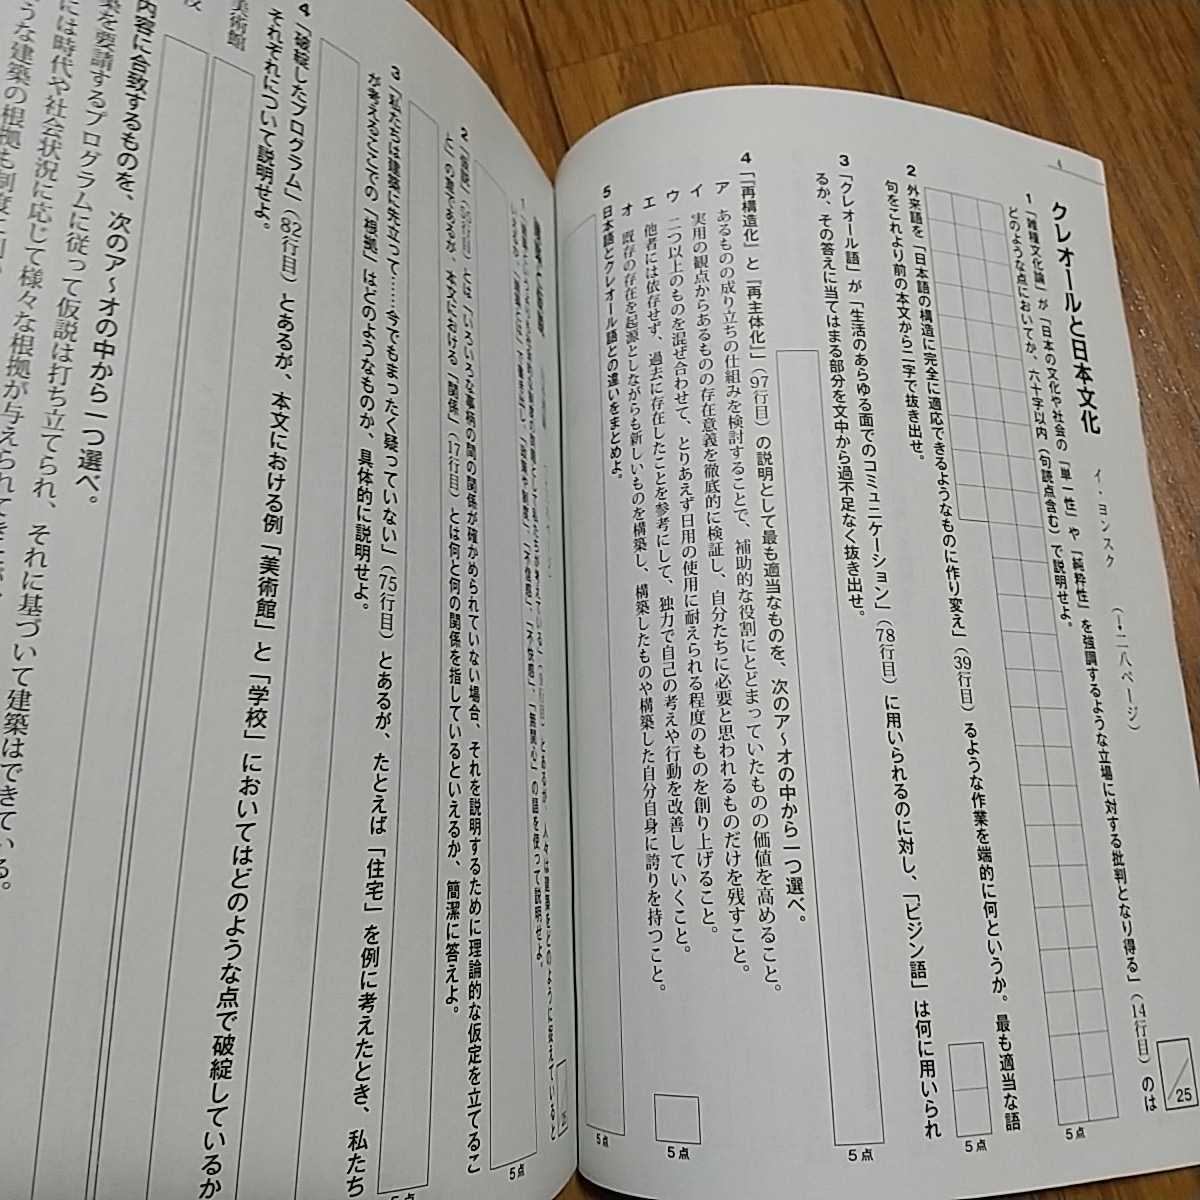 クレオールと日本文化
イ・ヨンスク
(➡二八ページ)
1 「雑種文化論」が「日本の文化や社会の『単一性』や『純粋性』を強調するような立場に対する批判となり得る」(14行目)のは
どのような点においてか、六十字以内(句読点含む)で説明せよ。
2 外来語を「日本語の構造に完全に適応できるようなものに作り変え」(39行目)るような作業を端的に何というか。最も適当な語
句をこれより前の本文から二字で抜き出せ。
3 「クレオール語」が「生活のあらゆる面でのコミュニケーション」(78行目)に用いられるのに対し、「ピジン語」は何に用いられ
るか、その答えに当てはまる部分を文中から過不足なく抜き出せ。
4 「『再構造化』と『再主体化』」(97行目)の説明として最も適当なものを、次のア〜オの中から一つ選べ。
ア あるものの成り立ちの仕組みを検討することで、補助的な役割にとどまっていたものの価値を高めること。
イ 実用の観点からあるものの存在意義を徹底的に検証し、自分たちに必要と思われるものだけを残すこと。
ウ 二つ以上のものを混ぜ合わせて、とりあえず日用の使用に耐えられる程度のものを創り上げること。
エ 他者には依存せず、過去に存在したことを参考にして、独力で自己の考えや行動を改善していくこと。
オ 既存の存在を起源としながらも新しいものを構築し、構築したものや構築した自分自身に誇りを持つこと。
5 日本語とクレオール語との違いをまとめよ。
/25
5点
5点
5点
5点
5点
「不信感」、「不快感」、「無関心」の語を使って説明せよ。
/25
2 「仮説」とは「いろいろな事柄の間の関係が確かめられていない場合、それを説明するために理論的な仮定を立てるこ
と」の意であるが、本文における「関係」(17行目)とは何と何の関係を指しているといえるか、簡潔に答えよ。
5点
3 「私たちは建築に先立って……今でもまったく疑っていない」(75行目)とあるが、たとえば「住宅」を例に考えたとき、私たち
が考えるここでの「根拠」はどのようなものか、具体的に説明せよ。
5点
4 「破綻したプログラム」(82行目)とあるが、本文における例「美術館」と「学校」においてはどのような点で破綻しているか
それぞれについて説明せよ。
美術館
校
内容に合致するものを、次のア〜オの中から一つ選べ。
築を要請するプログラムに従って仮説は打ち立てられ、それに基づいて建築はできている。
には時代や社会状況に応じて様々な根拠が与えられてき
うな建築の根拠も制度